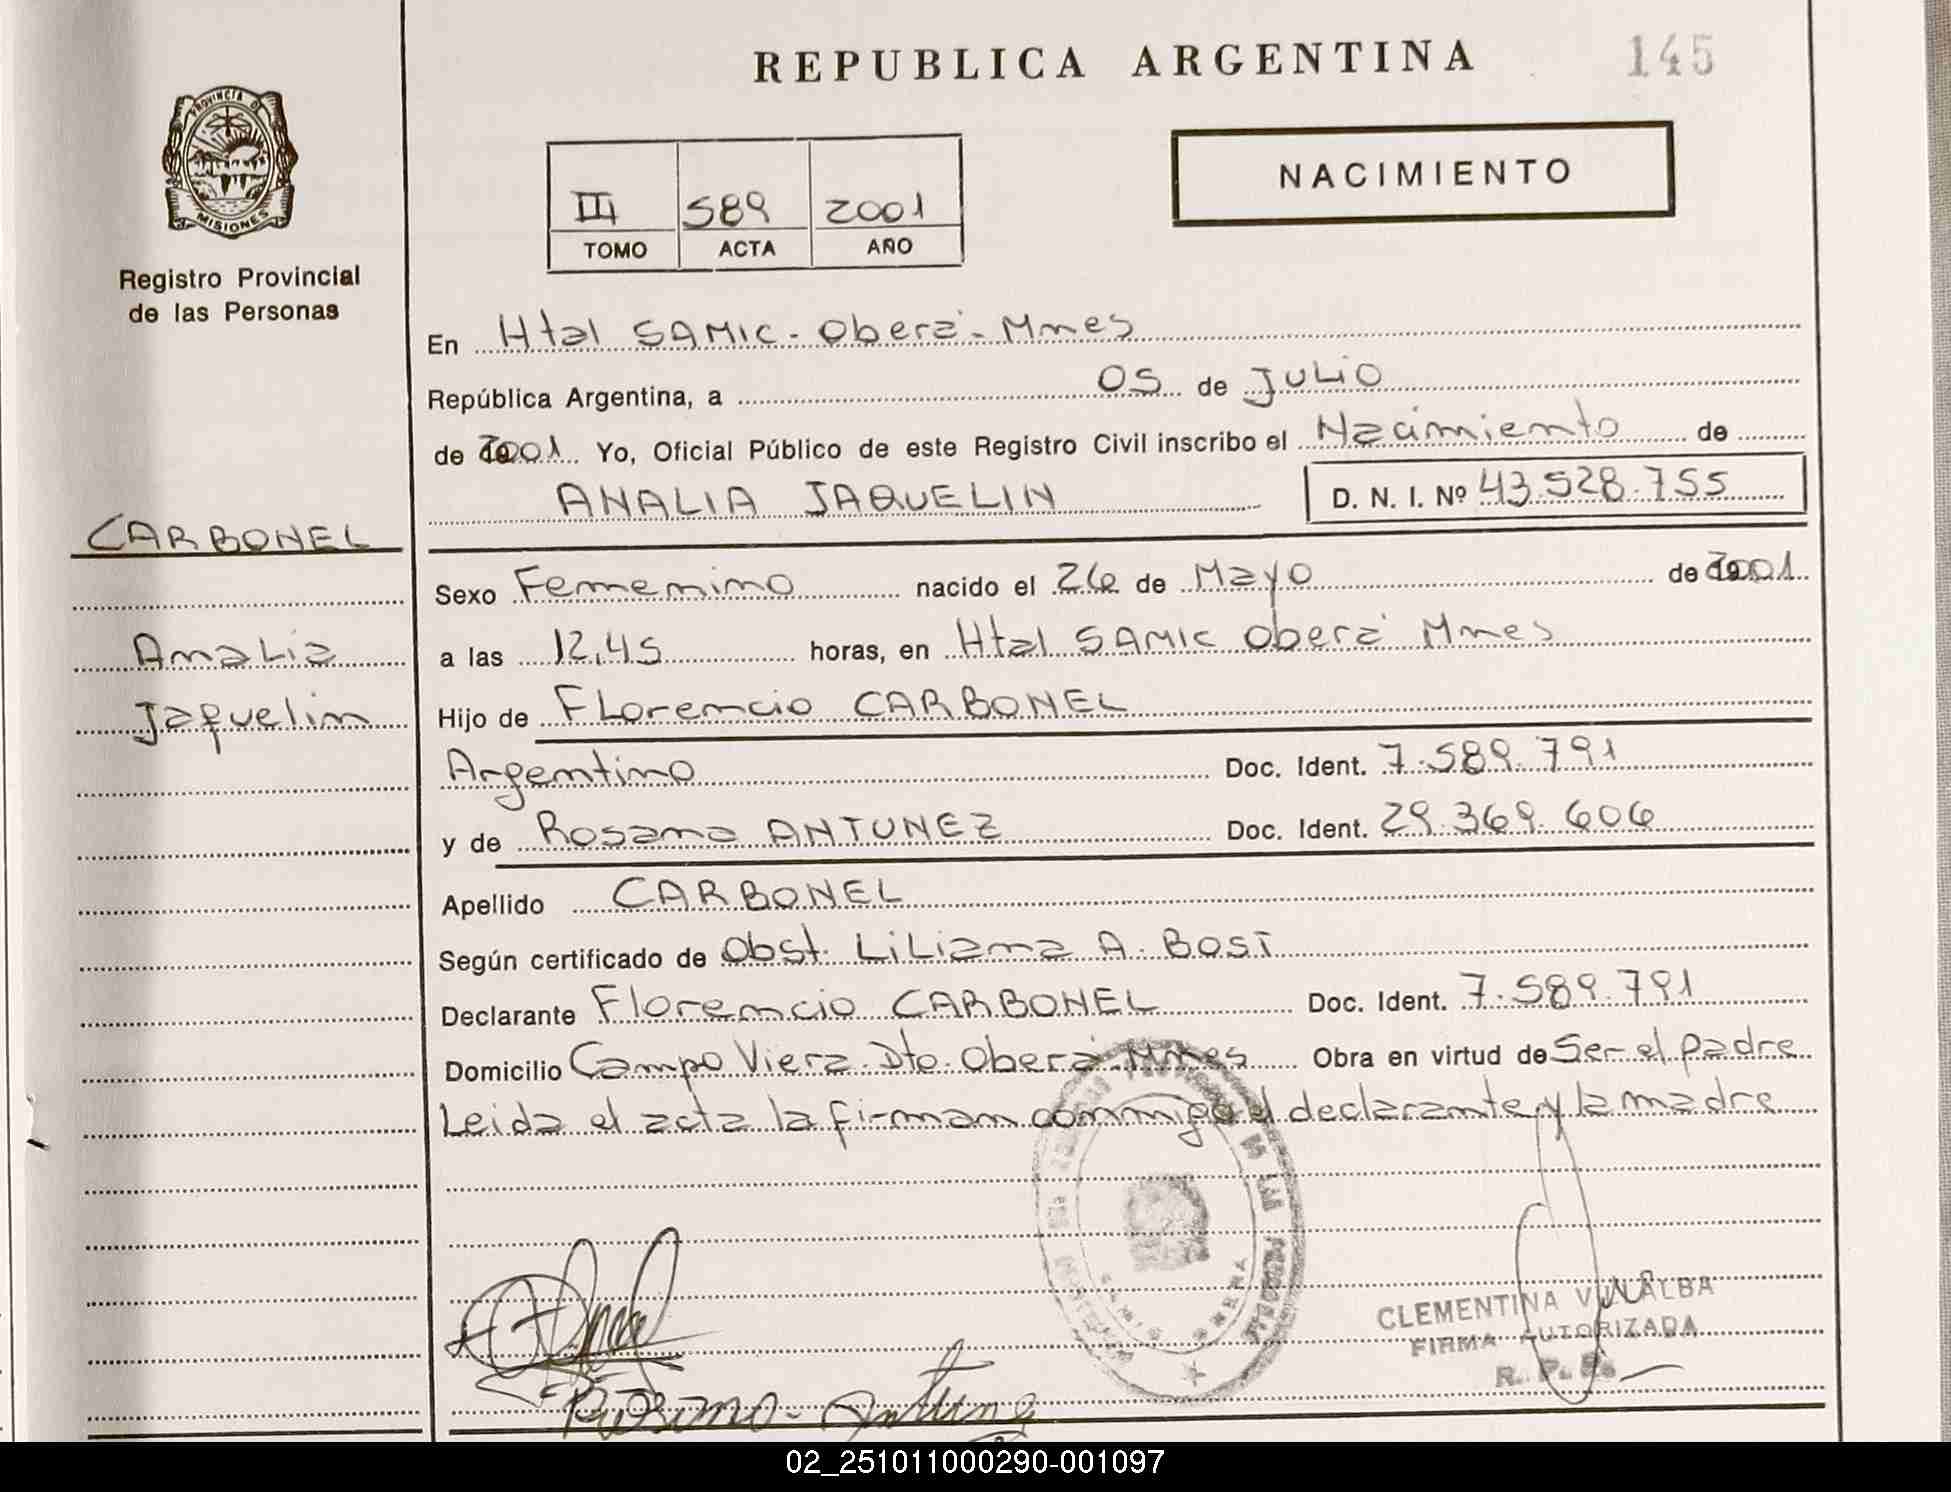 REPUBLICA ARGENTINA
145
PROVINCIA DE
MISIONES
Registro Provincial
de las Personas
NACIMIENTO
III 589 2001
TOMO ACTA AÑO
En Htal SAMIC - Oberá - Mnes
República Argentina, a 05 de JULIO
de 2001 Yo, Oficial Público de este Registro Civil inscribo el Nacimiento de
ANALIA JAQUELIN D. N. I. Nº 43.528.755
CARBONEL
Analia
Jaquelin
Sexo Femenino nacido el 26 de Mayo de 2001
a las 12,45 horas, en Htal SAMIC Oberá Mnes
Hijo de Florencio CARBONEL
Argentino Doc. Ident. 7.589.791
y de Rosana ANTUNEZ Doc. Ident. 29.369.606
Apellido CARBONEL
Según certificado de Obst. Liliana A. BOSI
Declarante Florencio CARBONEL Doc. Ident. 7.589.791
Domicilio Campo Viera. Dto. Oberá. Mnes Obra en virtud de Ser el padre
Leida el acta la firman conmigo el declarante y la madre
CLEMENTINA VILLALBA
FIRMA AUTORIZADA
R. P. P.
02_251011000290-001097